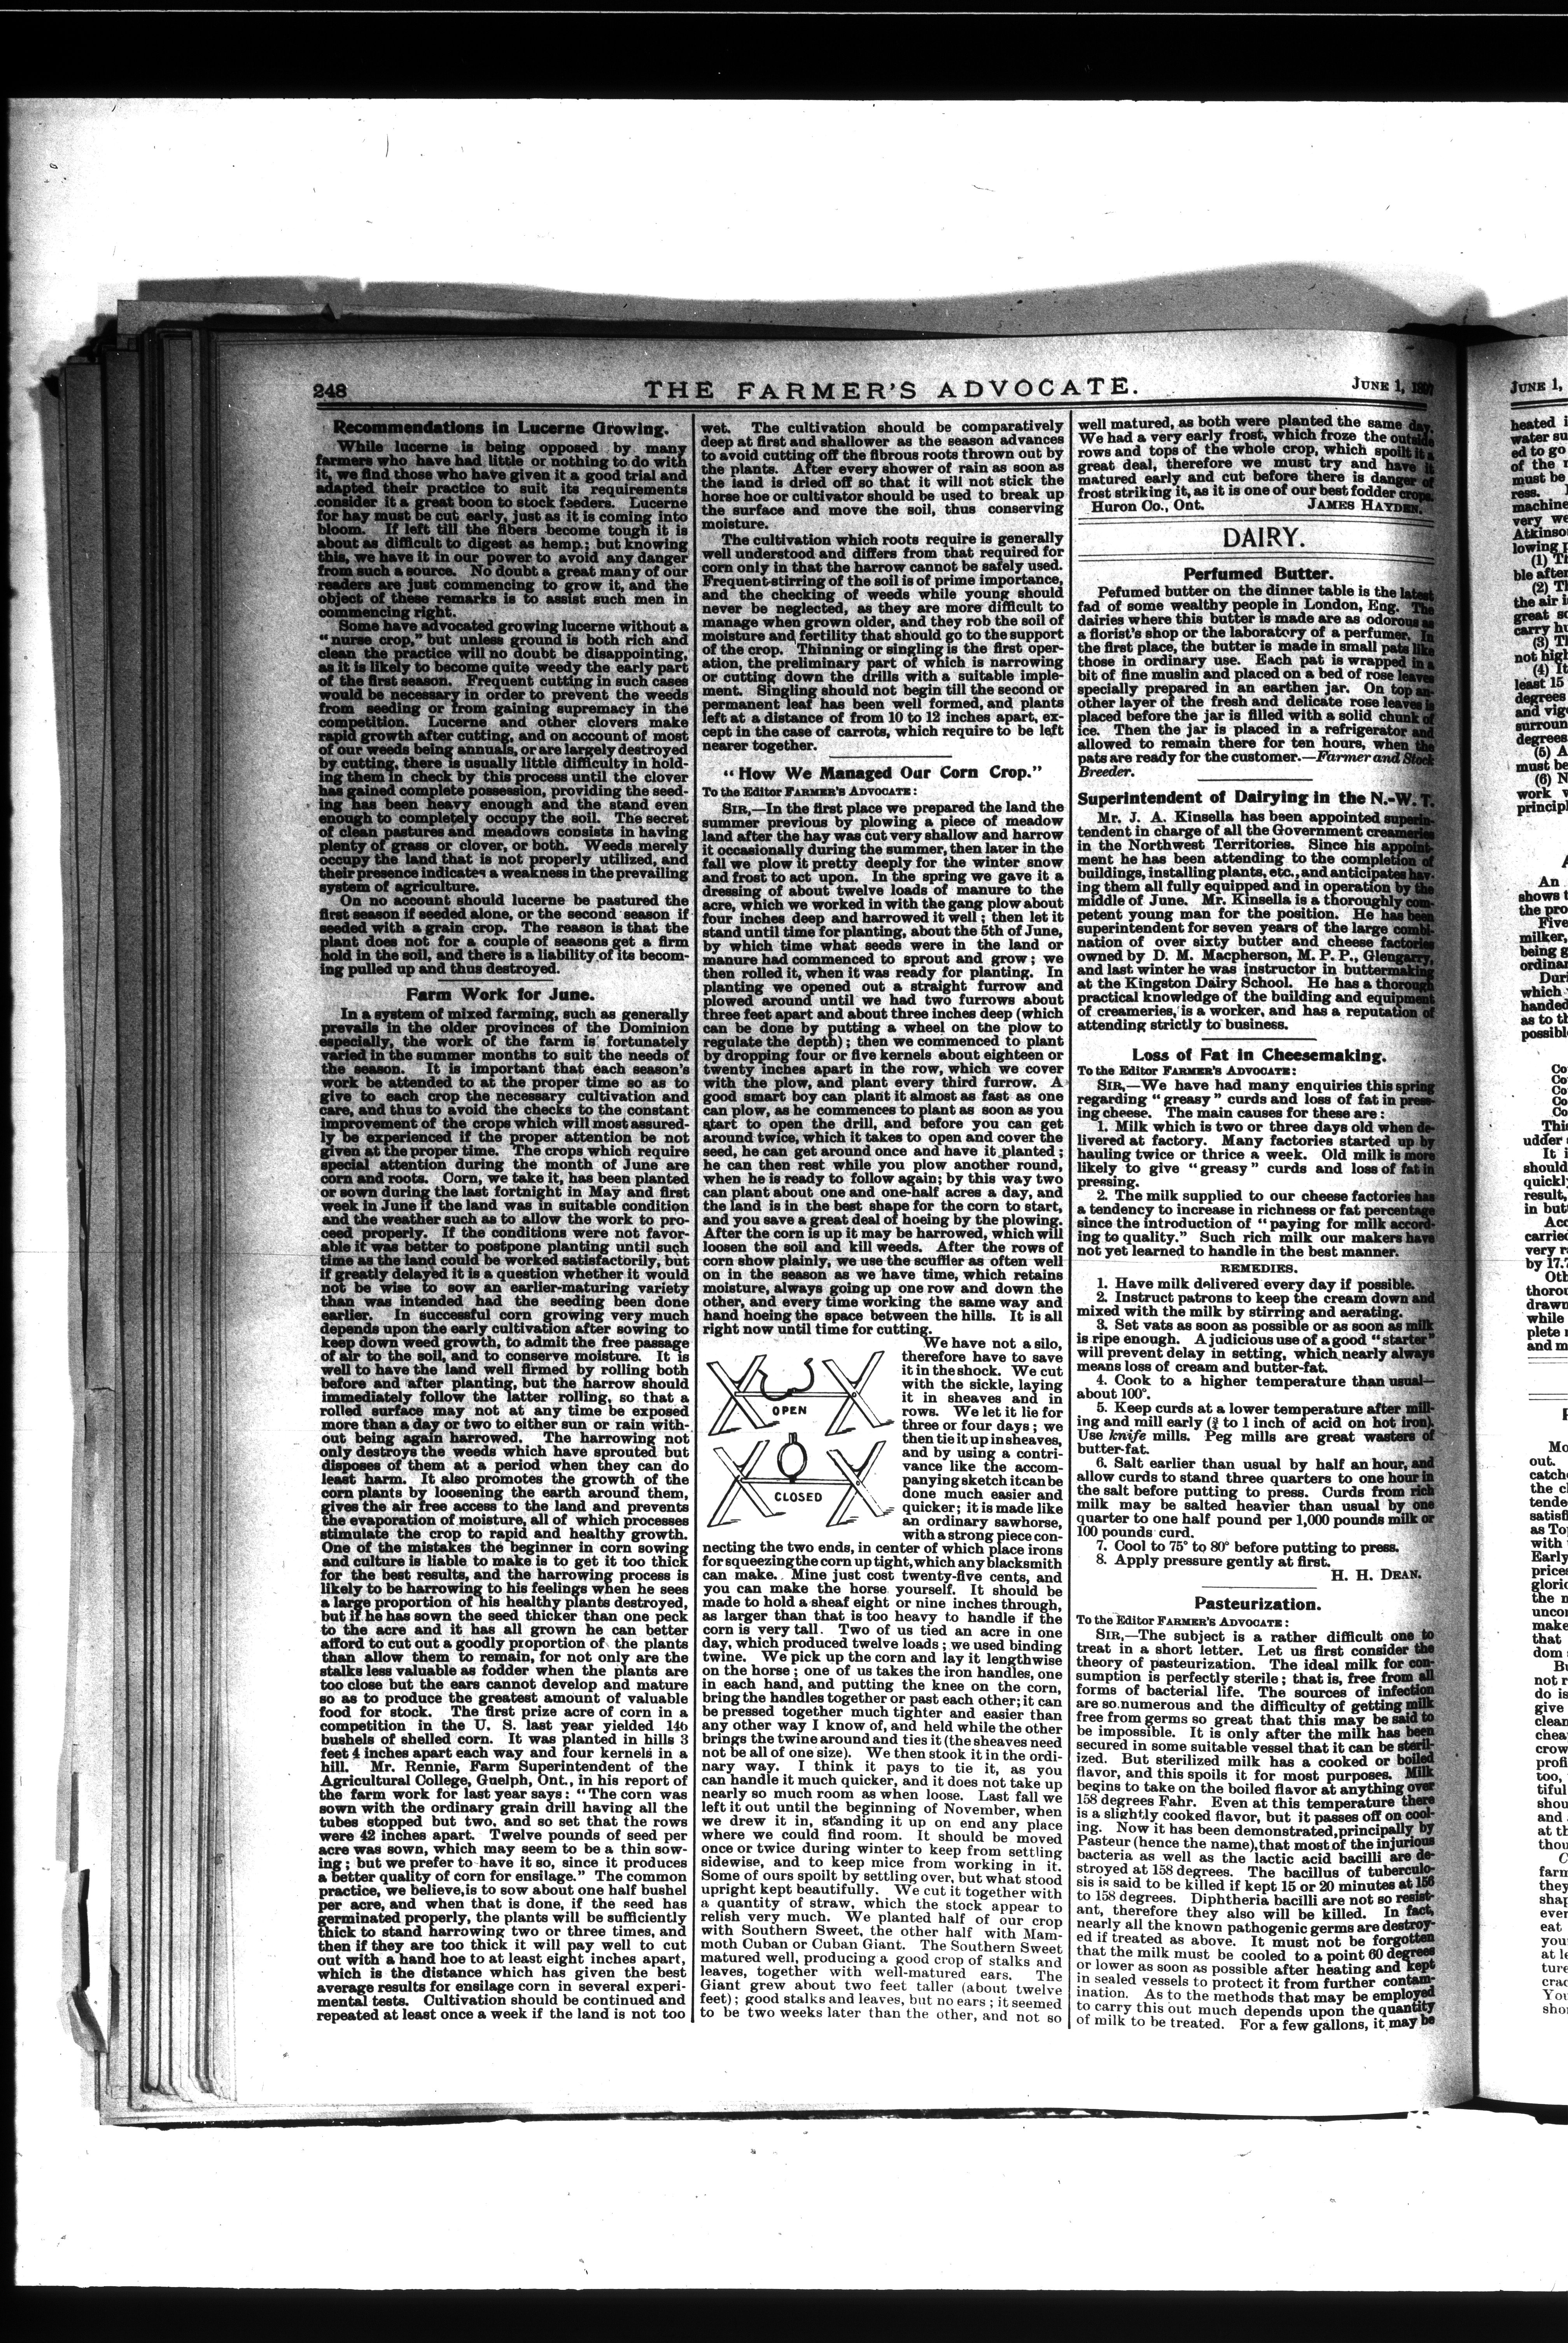 248
THE FARMER'S ADVOCATE.
JUNE 1,
Recommendations in Lucerne Growing.
While lucerne is being opposed by many
farmers who have had little or nothing to do with
it, we find those who have given it a good trial and
adapted their practice to suit its requirements
consider it a great boon to stock feeders. Lucerne
for hay must be cut early, just as it is coming into
bloom. If left till the fibers become tough it is
about as difficult to digest as hemp; but knowing
this, we have it in our power to avoid any danger
from such a source. No doubt a great many of our
readers are just commencing to grow it, and the
object of these remarks is to assist such men in
commencing right.
Some have advocated growing lucerne without a
"nurse crop," but unless ground is both rich and
clean the practice will no doubt be disappointing,
as it is likely to become quite weedy the early part
of the first season. Frequent cutting in such cases
would be necessary in order to prevent the weeds
from seeding or from gaining supremacy in the
competition. Lucerne and other clovers make
rapid growth after cutting, and on account of most
of our weeds being annuals, or are largely destroyed
by cutting, there is usually little difficulty in hold-
ing them in check by this process until the clover
has gained complete possession, providing the seed-
ing has been heavy enough and the stand even
enough to completely occupy the soil. The secret
of clean pastures and meadows consists in having
plenty of grass or clover, or both. Weeds merely
occupy the land that is not properly utilized, and
their presence indicates a weakness in the prevailing
system of agriculture.
On no account should lucerne be pastured the
first season if seeded alone, or the second season if
seeded with a grain crop. The reason is that the
plant does not for a couple of seasons get a firm
hold in the soil, and there is a liability of its becom-
ing pulled up and thus destroyed.
Farm Work for June.
In a system of mixed farming, such as generally
prevails in the older provinces of the Dominion
especially, the work of the farm is fortunately
varied in the summer months to suit the needs of
the season. It is important that each season's
work be attended to at the proper time so as to
give to each crop the necessary cultivation and
care, and thus to avoid the checks to the constant
improvement of the crops which will most assured-
ly be experienced if the proper attention be not
given at the proper time. The crops which require
special attention during the month of June are
corn and roots. Corn, we take it, has been planted
or sown during the last fortnight in May and first
week in June if the land was in suitable condition
and the weather such as to allow the work to pro-
ceed properly. If the conditions were not favor-
able it was better to postpone planting until such
time as the land could be worked satisfactorily, but
if greatly delayed it is a question whether it would
not be wise to sow an earlier-maturing variety
than was intended had the seeding been done
earlier. In successful corn growing very much
depends upon the early cultivation after sowing to
keep down weed growth, to admit the free passage
of air to the soil, and to conserve moisture. It is
well to have the land well firmed by rolling both
before and after planting, but the harrow should
immediately follow the latter rolling, so that a
rolled surface may not at any time be exposed
more than a day or two to either sun or rain with-
out being again harrowed. The harrowing not
only destroys the weeds which have sprouted but
disposes of them at a period when they can do
least harm. It also promotes the growth of the
corn plants by loosening the earth around them,
gives the air free access to the land and prevents
the evaporation of moisture, all of which processes
stimulate the crop to rapid and healthy growth.
One of the mistakes the beginner in corn sowing
and culture is liable to make is to get it too thick
for the best results, and the harrowing process is
likely to be harrowing to his feelings when he sees
a large proportion of his healthy plants destroyed,
but if he has sown the seed thicker than one peck
to the acre and it has all grown he can better
afford to cut out a goodly proportion of the plants
than allow them to remain, for not only are the
stalks less valuable as fodder when the plants are
too close but the ears cannot develop and mature
so as to produce the greatest amount of valuable
food for stock. The first prize acre of corn in a
competition in the U. S. last year yielded 146
bushels of shelled corn. It was planted in hills 3
feet 4 inches apart each way and four kernels in a
hill. Mr. Rennie, Farm Superintendent of the
Agricultural College, Guelph, Ont., in his report of
the farm work for last year says: "The corn was
sown with the ordinary grain drill having all the
tubes stopped but two, and so set that the rows
were 42 inches apart. Twelve pounds of seed per
acre was sown, which may seem to be a thin sow-
ing; but we prefer to have it so, since it produces
a better quality of corn for ensilage." The common
practice, we believe, is to sow about one half bushel
per acre, and when that is done, if the seed has
germinated properly, the plants will be sufficiently
thick to stand harrowing two or three times, and
then if they are too thick it will pay well to cut
out with a hand hoe to at least eight inches apart,
which is the distance which has given the best
average results for ensilage corn in several experi-
mental tests. Cultivation should be continued and
repeated at least once a week if the land is not too
wet. The cultivation should be comparatively
deep at first and shallower as the season advances
to avoid cutting off the fibrous roots thrown out by
the plants. After every shower of rain as soon as
the land is dried off so that it will not stick the
horse hoe or cultivator should be used to break up
the surface and move the soil, thus conserving
moisture.
The cultivation which roots require is generally
well understood and differs from that required for
corn only in that the harrow cannot be safely used.
Frequent stirring of the soil is of prime importance,
and the checking of weeds while young should
never be neglected, as they are more difficult to
manage when grown older, and they rob the soil of
moisture and fertility that should go to the support
of the crop. Thinning or singling is the first oper-
ation, the preliminary part of which is narrowing
or cutting down the drills with a suitable imple-
ment. Singling should not begin till the second or
permanent leaf has been well formed, and plants
left at a distance of from 10 to 12 inches apart, ex-
cept in the case of carrots, which require to be left
nearer together.
"How We Managed Our Corn Crop."
To the Editor FARMER'S ADVOCATE:
SIR,—In the first place we prepared the land the
summer previous by plowing a piece of meadow
land after the hay was cut very shallow and harrow
it occasionally during the summer, then later in the
fall we plow it pretty deeply for the winter snow
and frost to act upon. In the spring we gave it a
dressing of about twelve loads of manure to the
acre, which we worked in with the gang plow about
four inches deep and harrowed it well; then let it
stand until time for planting, about the 5th of June,
by which time what seeds were in the land or
manure had commenced to sprout and grow; we
then rolled it, when it was ready for planting. In
planting we opened out a straight furrow and
plowed around until we had two furrows about
three feet apart and about three inches deep (which
can be done by putting a wheel on the plow to
regulate the depth); then we commenced to plant
by dropping four or five kernels about eighteen or
twenty inches apart in the row, which we cover
with the plow, and plant every third furrow. A
good smart boy can plant it almost as fast as one
can plow, as he commences to plant as soon as you
start to open the drill, and before you can get
around twice, which it takes to open and cover the
seed, he can get around once and have it planted;
he can then rest while you plow another round,
when he is ready to follow again; by this way two
can plant about one and one-half acres a day, and
the land is in the best shape for the corn to start,
and you save a great deal of hoeing by the plowing.
After the corn is up it may be harrowed, which will
loosen the soil and kill weeds. After the rows of
corn show plainly, we use the scuffler as often well
on in the season as we have time, which retains
moisture, always going up one row and down the
other, and every time working the same way and
hand hoeing the space between the hills. It is all
right now until time for cutting.
We have not a silo,
therefore have to save
it in the shock. We cut
with the sickle, laying
it in sheaves and in
rows. We let it lie for
three or four days; we
then tie it up in sheaves,
and by using a contri-
vance like the accom-
panying sketch it can be
done much easier and
quicker; it is made like
an ordinary sawhorse,
with a strong piece con-
OPEN
CLOSED
necting the two ends, in center of which place irons
for squeezing the corn up tight, which any blacksmith
can make. Mine just cost twenty-five cents, and
you can make the horse yourself. It should be
made to hold a sheaf eight or nine inches through,
as larger than that is too heavy to handle if the
corn is very tall. Two of us tied an acre in one
day, which produced twelve loads; we used binding
twine. We pick up the corn and lay it lengthwise
on the horse; one of us takes the iron handles, one
in each hand, and putting the knee on the corn,
bring the handles together or past each other; it can
be pressed together much tighter and easier than
any other way I know of, and held while the other
brings the twine around and ties it (the sheaves need
not be all of one size). We then stook it in the ordi-
nary way. I think it pays to tie it, as you
can handle it much quicker, and it does not take up
nearly so much room as when loose. Last fall we
left it out until the beginning of November, when
we drew it in, standing it up on end any place
where we could find room. It should be moved
once or twice during winter to keep from settling
sidewise, and to keep mice from working in it.
Some of ours spoilt by settling over, but what stood
upright kept beautifully. We cut it together with
a quantity of straw, which the stock appear to
relish very much. We planted half of our crop
with Southern Sweet, the other half with Mam-
moth Cuban or Cuban Giant. The Southern Sweet
matured well, producing a good crop of stalks and
leaves, together with well-matured ears. The
Giant grew about two feet taller (about twelve
feet); good stalks and leaves, but no ears; it seemed
to be two weeks later than the other, and not so
well matured, as both were planted the same day.
We had a very early frost, which froze the outside
rows and tops of the whole crop, which spoilt it a
great deal, therefore we must try and have it
matured early and cut before there is danger of
frost striking it, as it is one of our best fodder crops.
Huron Co., Ont. JAMES HAYDEN.
DAIRY.
Perfumed Butter.
Pefumed butter on the dinner table is the latest
fad of some wealthy people in London, Eng. The
dairies where this butter is made are as odorous as
a florist's shop or the laboratory of a perfumer. In
the first place, the butter is made in small pats like
those in ordinary use. Each pat is wrapped in a
bit of fine muslin and placed on a bed of rose leaves
specially prepared in an earthen jar. On top an-
other layer of the fresh and delicate rose leaves is
placed before the jar is filled with a solid chunk of
ice. Then the jar is placed in a refrigerator and
allowed to remain there for ten hours, when the
pats are ready for the customer.—Farmer and Stock
Breeder.
Superintendent of Dairying in the N.-W. T.
Mr. J. A. Kinsella has been appointed superin-
tendent in charge of all the Government creameries
in the Northwest Territories. Since his appoint-
ment he has been attending to the completion of
buildings, installing plants, etc., and anticipates hav-
ing them all fully equipped and in operation by the
middle of June. Mr. Kinsella is a thoroughly com-
petent young man for the position. He has been
superintendent for seven years of the large combi-
nation of over sixty butter and cheese factories
owned by D. M. Macpherson, M. P. P., Glengarry,
and last winter he was instructor in buttermaking
at the Kingston Dairy School. He has a thorough
practical knowledge of the building and equipment
of creameries, is a worker, and has a reputation of
attending strictly to business.
Loss of Fat in Cheesemaking.
To the Editor FARMER'S ADVOCATE:
SIR,—We have had many enquiries this spring
regarding "greasy" curds and loss of fat in press-
ing cheese. The main causes for these are:
1. Milk which is two or three days old when de-
livered at factory. Many factories started up by
hauling twice or thrice a week. Old milk is more
likely to give "greasy" curds and loss of fat in
pressing.
2. The milk supplied to our cheese factories has
a tendency to increase in richness or fat percentage
since the introduction of "paying for milk accord-
ing to quality." Such rich milk our makers have
not yet learned to handle in the best manner.
REMEDIES.
1. Have milk delivered every day if possible.
2. Instruct patrons to keep the cream down and
mixed with the milk by stirring and aerating.
3. Set vats as soon as possible or as soon as milk
is ripe enough. A judicious use of a good "starter"
will prevent delay in setting, which nearly always
means loss of cream and butter-fat.
4. Cook to a higher temperature than usual—
about 100°.
5. Keep curds at a lower temperature after mill-
ing and mill early (¾ to 1 inch of acid on hot iron).
Use knife mills. Peg mills are great wasters of
butter-fat.
6. Salt earlier than usual by half an hour, and
allow curds to stand three quarters to one hour in
the salt before putting to press. Curds from rich
milk may be salted heavier than usual by one
quarter to one half pound per 1,000 pounds milk or
100 pounds curd.
7. Cool to 75° to 80° before putting to press.
8. Apply pressure gently at first.
H. H. DEAN.
Pasteurization.
To the Editor FARMER'S ADVOCATE:
SIR,—The subject is a rather difficult one to
treat in a short letter. Let us first consider the
theory of pasteurization. The ideal milk for con-
sumption is perfectly sterile; that is, free from all
forms of bacterial life. The sources of infection
are so numerous and the difficulty of getting milk
free from germs so great that this may be said to
be impossible. It is only after the milk has been
secured in some suitable vessel that it can be steril-
ized. But sterilized milk has a cooked or boiled
flavor, and this spoils it for most purposes. Milk
begins to take on the boiled flavor at anything over
158 degrees Fahr. Even at this temperature there
is a slightly cooked flavor, but it passes off on cool-
ing. Now it has been demonstrated, principally by
Pasteur (hence the name), that most of the injurious
bacteria as well as the lactic acid bacilli are de-
stroyed at 158 degrees. The bacillus of tuberculo-
sis is said to be killed if kept 15 or 20 minutes at 156
to 158 degrees. Diphtheria bacilli are not so resist-
ant, therefore they also will be killed. In fact,
nearly all the known pathogenic germs are destroy-
ed if treated as above. It must not be forgotten
that the milk must be cooled to a point 60 degrees
or lower as soon as possible after heating and kept
in sealed vessels to protect it from further contam-
ination. As to the methods that may be employed
to carry this out much depends upon the quantity
of milk to be treated. For a few gallons, it may be
JUNE 1,